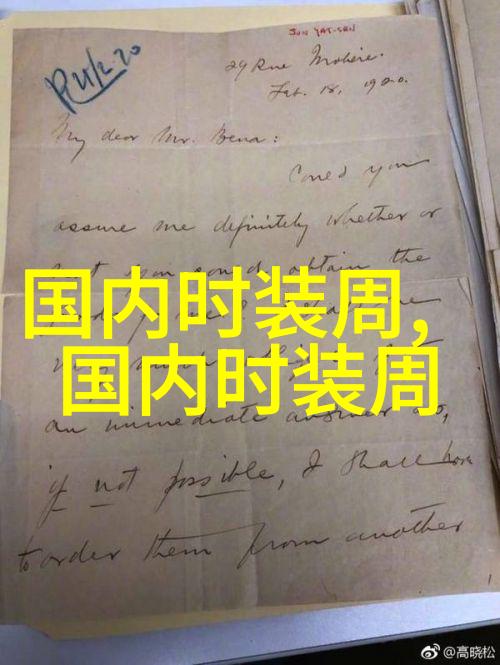 SUN YAT-SEN
R 21/2·20
29 Rue Molière.
Feb. 18, 1920.
My dear Mr. Bena:
Could you
assure me definitely whether or
not you could obtain the
国内时装周,
国内时装周
an immediate answer as,
if not possible, I shall have
to order them from another
@高晓松